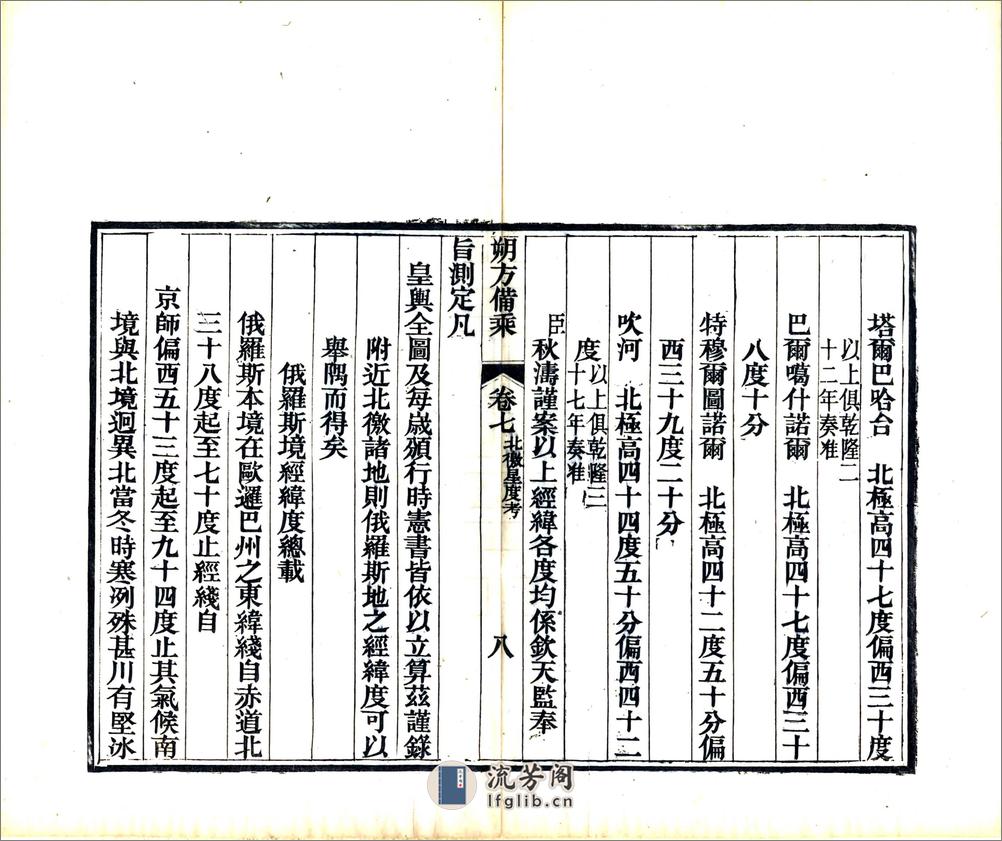 塔爾巴哈台　北極高四十七度偏西三十度
以上俱乾隆二
十二年奏准
巴爾噶什諾爾　北極高四十七度偏西三十
八度十分
特穆爾圖諾爾　北極高四十二度五十分偏
西三十九度二十分
吹河　北極高四十四度五十分偏西四十二
度
以上俱乾隆二
十七年奏准
臣秋濤謹案以上經緯各度均係欽天監奉
朔方備乘　卷七　北徼星度考　八
旨測定凡
皇輿全圖及每歲頒行時憲書皆依以立算茲謹錄
附近北徼諸地則俄羅斯地之經緯度可以
舉隅而得矣
俄羅斯境經緯度總載
俄羅斯本境在歐邏巴州之東緯綫自赤道北
三十八度起至七十度止經綫自
京師偏西五十三度起至九十四度止其氣候南
境與北境迥異北當冬時寒冽殊甚川有堅冰
流芳阁
lfglib.cn